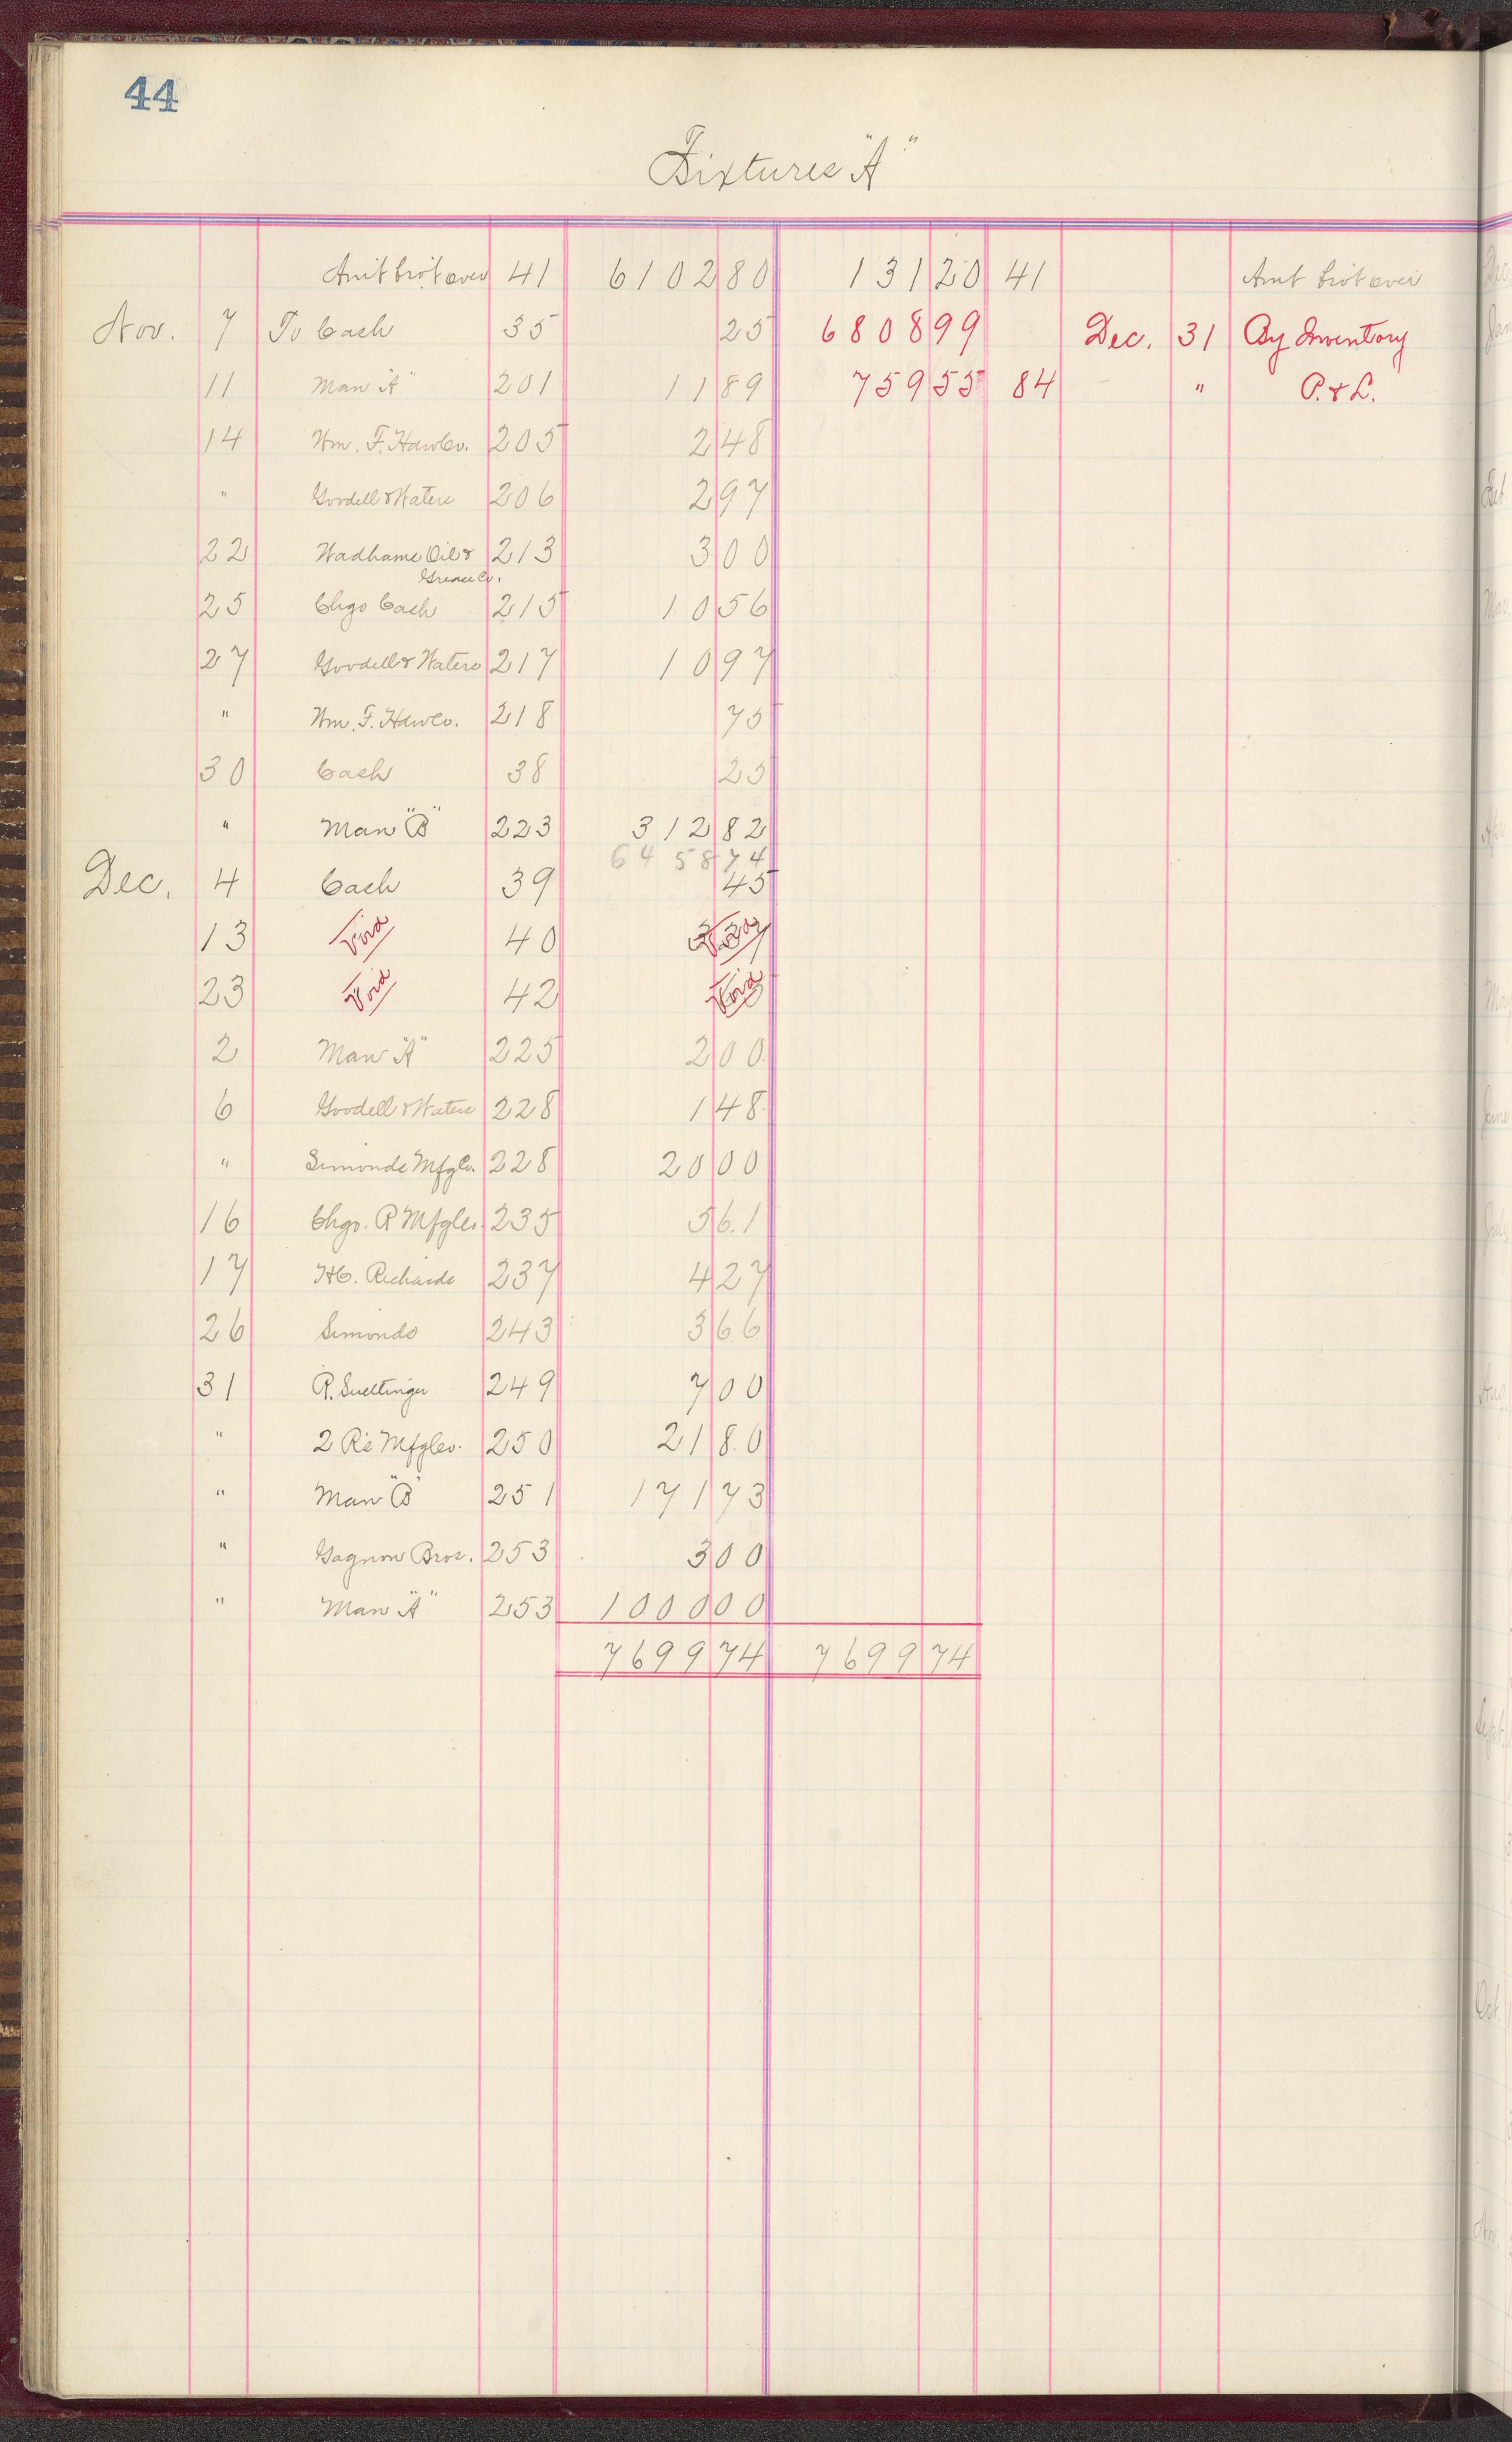 44
Fixtures "A"
Amt brot over 41 6102 80 131 20 41 Amt brot over
Nov. 7 To Cash 35 25 6808 99 Dec. 31 By Inventory
11 Man "A" 201 11 89 759 55 84 " P. & L.
14 Wm. F. Hdw Co. 205 2 48
" Goodell & Waters 206 2 97
22 Wadhams Oil & 213 3 00
Grease Co.
25 Chgo Cash 215 10 56
27 Goodell & Waters 217 10 97
" Wm. F. Hdw Co. 218 75
30 Cash 38 25
" Man "B" 223 312 82
6458 74
Dec. 4 Cash 39 45
13 Void 40 Void
23 Void 42 Void
2 Man "A" 225 2 00
6 Goodell & Waters 228 1 48
" Simonds Mfg Co. 228 20 00
16 Chgo. R Mfg Co. 235 5 61
17 H C. Richards 237 4 27
26 Simonds 243 3 66
31 249 7 00
" 2 R's Mfg Co. 250 21 80
" Man "B" 251 171 73
" Gagnon Bros. 253 3 00
" Man "A" 253 1000 00
7699 74 7699 74